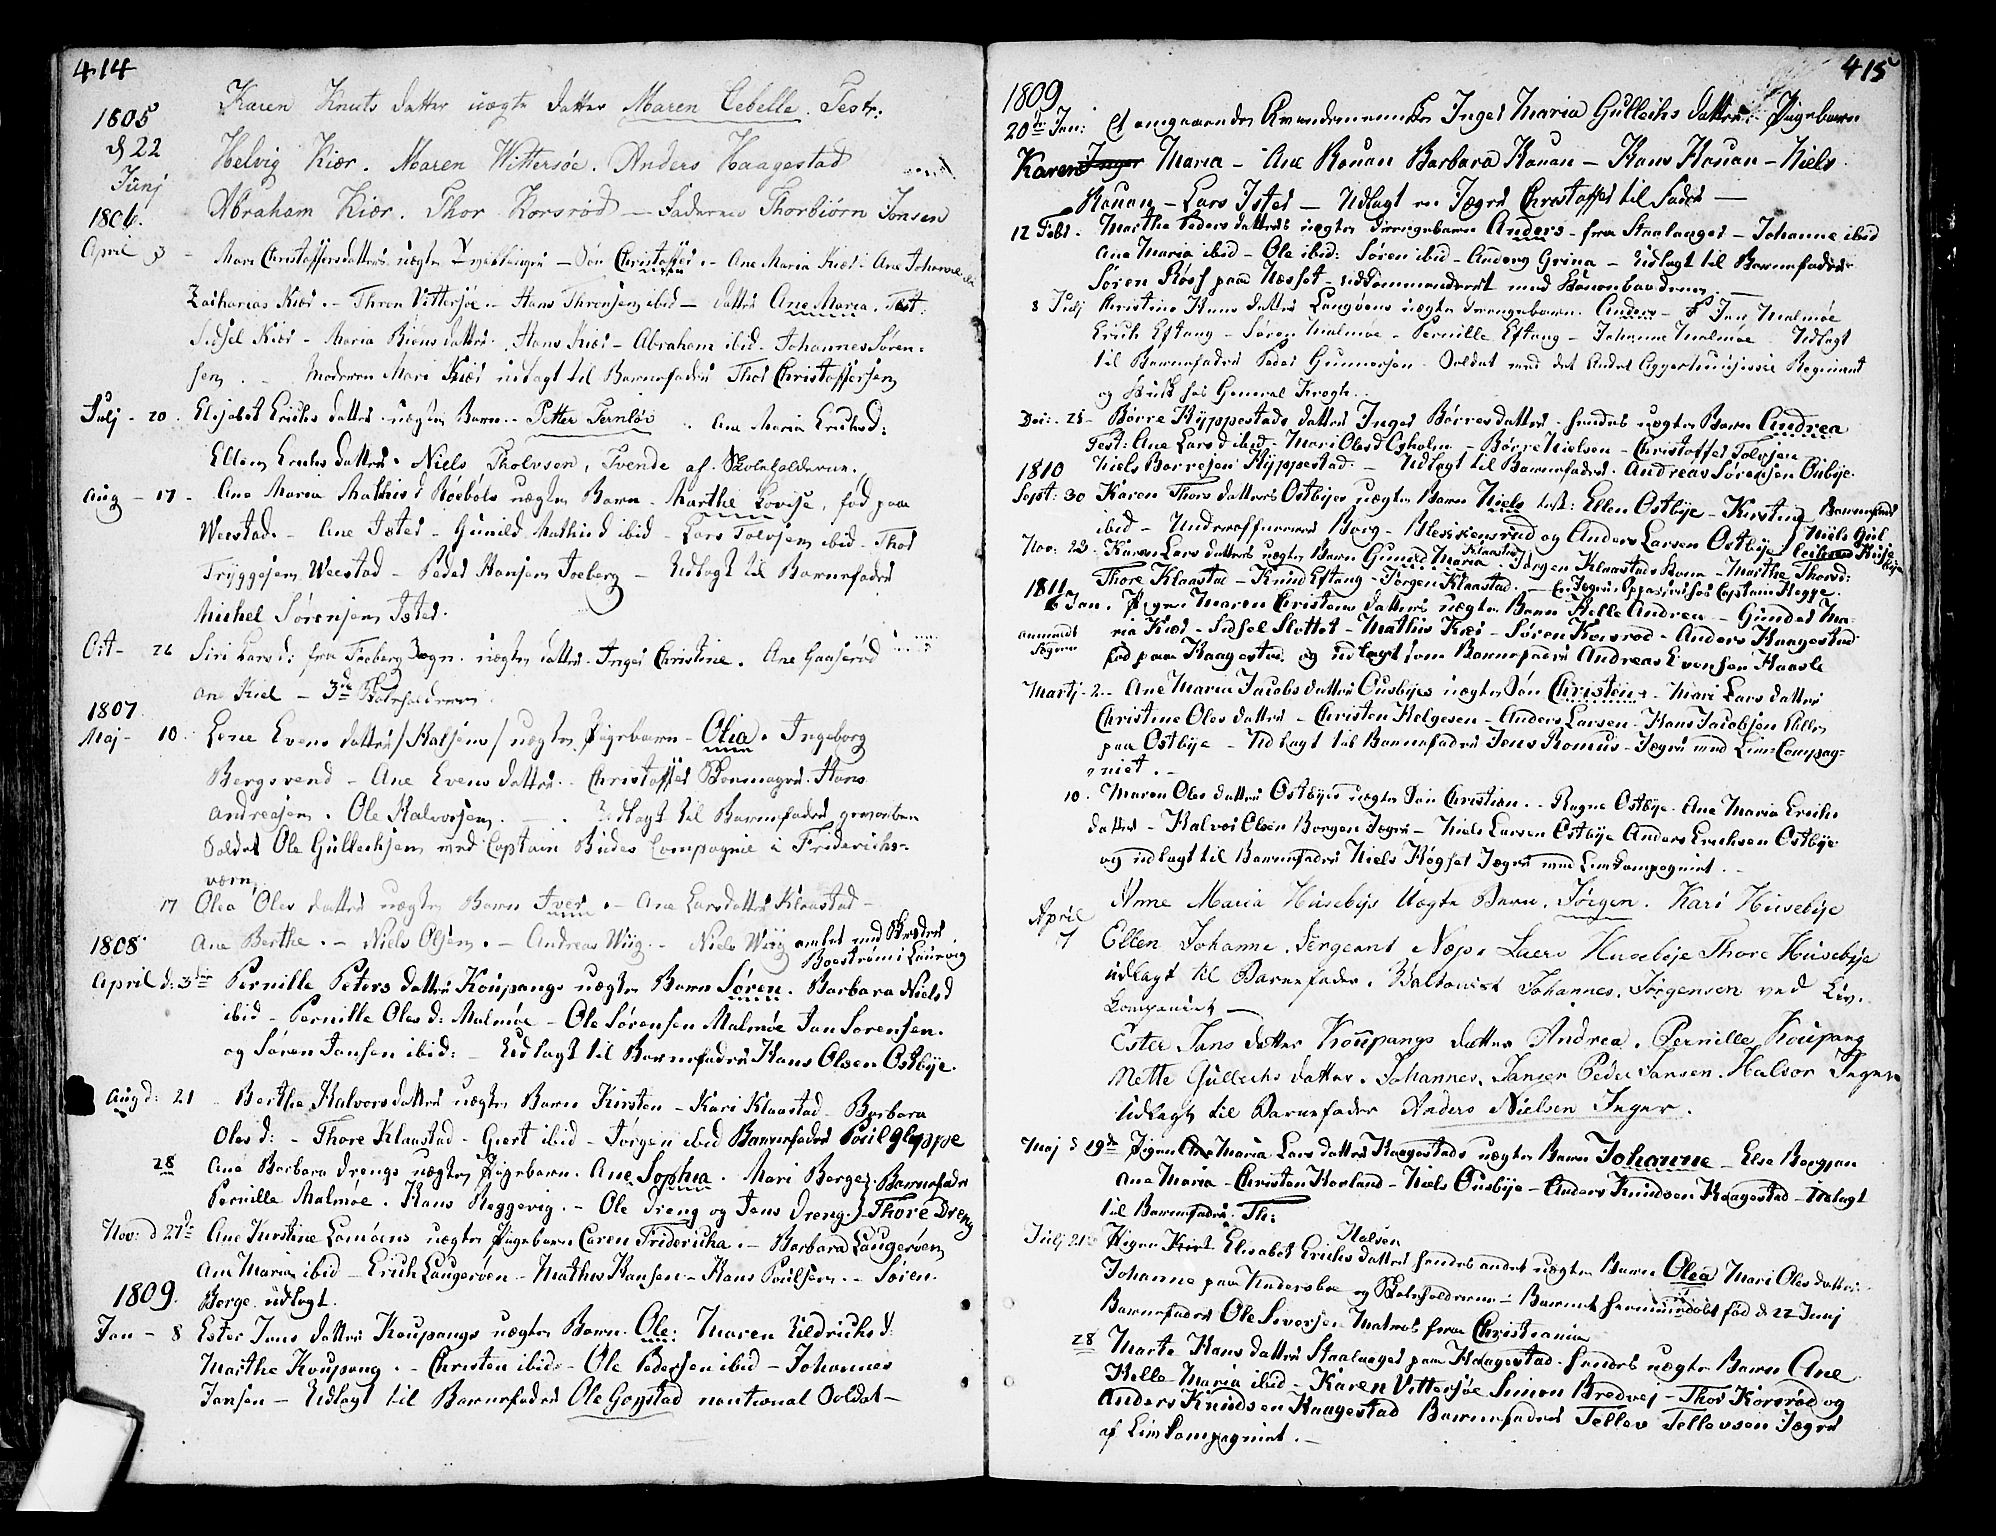 414
Karen Knuts datter uægte datter Maren Cebelle. Testr:
1805
d 22 Helvig Kiær. Maren Wittersøe. Anders Haagestad
Junj
1806. Abraham Kiær. Thor Korsrød — Faderen Thorbiørn Jonsen
April 3 - Mari Christoffersdatters uægte Tvillinger — Søn Christoffer. - Ane Maria Kiær - Ane Johanne ibi
Zacharias Kiær. - Thron Vittersøe - Hans Thronsen ibid — datter Ane Maria. Test:
Sidsel Kiær - Maria Biøns datter. Hans Kiær - Abraham ibid - Johannes Søren-
sen. - Moderen Mari Kiær udlagt til Barnefader Thor Christoffersen
Julj - 20. Elisabet Erichs datters uægte Barn - Petter Fernløv .. Ane Maria Erichsd:
Ellen Erichs datter. Niels Tholvsen, Tvende af Skoleholderne.
Aug - 17 - Ane Maria Mathisd Røebøls uægte Barn - Marthe Lovise, fød paa
Weestad. - Ane Ister - Gunild Mathisd ibid - Lars Tolvsen ibid - Thor
Tryggesen Weestad - Peder Hansen Joeberg — Udlagt til Barnefader
Michel Sørensen Ister.
Oct - 26 Siri Larsd: fra Foeberg Sogn. uægte datter - Inger Christine. Ane Gaaserød
an Kiel — 3de Skoleholderen.
1807
Maj - 10. Lene Evens datters / Halsens / uægte Pigebarn - Olia. Ingeborg
Bergsvend - Ane Evensdatter. - Christoffer Skomager. Hans
Andreasen. Ole Halvorsen. — . Udlagt til Barnefader gevorben
Soldat Ole Gulleichsen med Captain Budes Compagnie i Friderichs-
værn,
17 Olea Oles datters uægte Barn Iver. - Ane Larsdatter Klaastad -
Ane Berthe. - Niels Olsen. - Andreas Wiig. - Niels Wiig
1808.
April d: 3die Pernille Peters datters Koupangs uægte Barn Søren. Barbara Nielsd
ibid - Pernille Olesd: Malmøe - Ole Sørensen Malmøe Jan Sørensen.
og Søren Jansen ibid: - Udlagt til Barnefader Hans Olsen Østbye.
Aug d: 21 - Berthe Halvorsdatters uægte Barn Kirsten - Kari Klaastad - Barbara
Olesd: - Thore Klaastad - Giert ibid - Jørgen ibid Barnefader Poul Gloppe
28 Ane Barbara Drengs uægte Pigebarn. Ane Sophia. Mari Berge. Barnefader
Pernille Malmøe. Hans Reggevig. - Ole Dreng og Jens Dreng. } Thore Dreng
Nov: d 27de Ane Kirstine Lamøens uægte Pigebarn Caren Fridericha. - Barbara Laugerøen
Ane Maria ibid - Erich Laugerøen - Mathis Hansen - Hans Poulsen. - Søren
1809. Berge udlagt.
Jan - 8 Ester Jans datters Koupangs uægte Barn. Ole: Maren Uldrichsd:
Marthe Koupang. - Christen ibid - Ole Pedersen ibid - Johannes
Jansen — Udlagt til Barnefader Ole Gogstad nantional Soldat —
415
1809
20de Jan: Et omgaaende Qvindemenneske Inger Maria Gulleichs datters Pigebarn
Karen Inger Maria - Ane Rouan Barbara Rouan — Hans Rouan - Niels
Rouan - Lars Ister - Udlagt en Jæger Christoffer til Fader —
12 Febr. Marthe Peders datters uægte Drengebarn Anders - fra Staalauger - Johanne ibid
Ane Maria ibid - Ole ibid: Søren ibid - Anders Grina - Udlagt til Barnefader
Søren Røes paa Næsset - udkommanderet med Kanonbaadene. —
8 Julj Christine Hans datter Langøens uægte Drengebarn. Anders - Jan Malmøe
Erich Eftang - Søren Malmøe - Pernille Eftang - Johanne Malmøe. Udlagt
til Barnefader Peder Gunnersen. Soldat med det Andet Aggershuusiske Regiment
og Kusk hos General Krogh.
Dec: 25 - Børre Hyppestads datter Inger Børresdatter. hendes uægte Barn Andrea
Test: Ane Larsd ibid - Mari Olesd Ogholm - Børre Nielsen - Christoffer Tolvsen
Niels Børresen Hyppestad. - Udlagt til Barnefader. Andreas Sørensen Ousbye
1810
Sept: 30 Karen Thors datters Østbyes uægte Barn Niels test: Ellen Østbye - Kirstine } Barnefader
ibid - Underofficeren Borg - Bleskensrud og Anders Larsen Østbye } Niels Gul
Nov: 23. Karen Lars datters uægte Barn Gunild Maria Klaastad. Jørgen Klaastads Kone - Marthe Thorsd:
Thore Klaastad - Knud Eftang - Jørgen Klaastad. — En Jæger, Oppasser hos Captain Hegge.
1811
6 Jan. Pigen Maren Christens datters uægte Barn Helle Andrea - Gunder Ma-
ria Kiær - Sidsel Slottet - Mathis Kiær - Søren Korsrod - Anders Haagestad
fød paa Haagestad. og udlagt som Barnefader Andreas Evensen Haasle
Martj - 2 - Ane Maria Jacobsdatters Ousbyes uægte Søn Christen. - Mari Lars datter
Christine Oles datter - Christen Helgesen - Anders Larsen - Hans Jacobsen Alle
paa Østbye - Udlagt til Barnefader Jens Romus - Jæger med Liv-Compag-
niet. -
10. Maren Oles datters Østbyes uægte Søn Christian. - Ragne Østbye. Ane Maria Erichs
datter - Halvor Olsen Borgen Jæger - Niels Larsen Østbye Anders Erichsen Østbye
og udlagt til Barnefader Niels Høgset Jæger med Livkompagniet. -
April 7 Anne Maria Husebyes Uægte Barn. Jørgen. Kari Husebye
Ellen Johanne. Sergeant Næps. Laers Husebye Thore Husebye
udlagt til Barnefader. Johannes Jørgensen ved Liv.
kompaniet —
Ester Jans datter Koupangs datter Andrea. Pernille Koupang
Mette Gullichs datter. Johannes Jansen Peder Jansen. Halvor Inger
Udlagt til Barnefader Anders Nielsen Inger.
Maj d 19de Pigen Ane Maria Lars datters Haagestads uægte Barn Johanne - Else Bergan
Ane Maria - Christen Horland - Niels Ousbye - Anders Knudsen Haagestad - Udlagt
til Barnefader. Th:
Julj 21 Pigen Kirst Elisabet Erichsdatter Halsen hendes andet uægte Barn Olea Mari Oles datter:
Johanne paa Undersboe og Skoleholderne - Barnet hjemmedøbt fød d 22 Junj
Barnefader Ole Siversen Matros fra Christiania
28 Marte Hans datters Staalauger paa Haagestad. hendes uægte Barn Ane
Helle Maria ibid - Karen Vittersøe Simon Bredvej - Thor Korsrød og
Anders Knudsen Haagestad Barnefader Tellev Tellevsen Jæger
af Livkompagniet. -